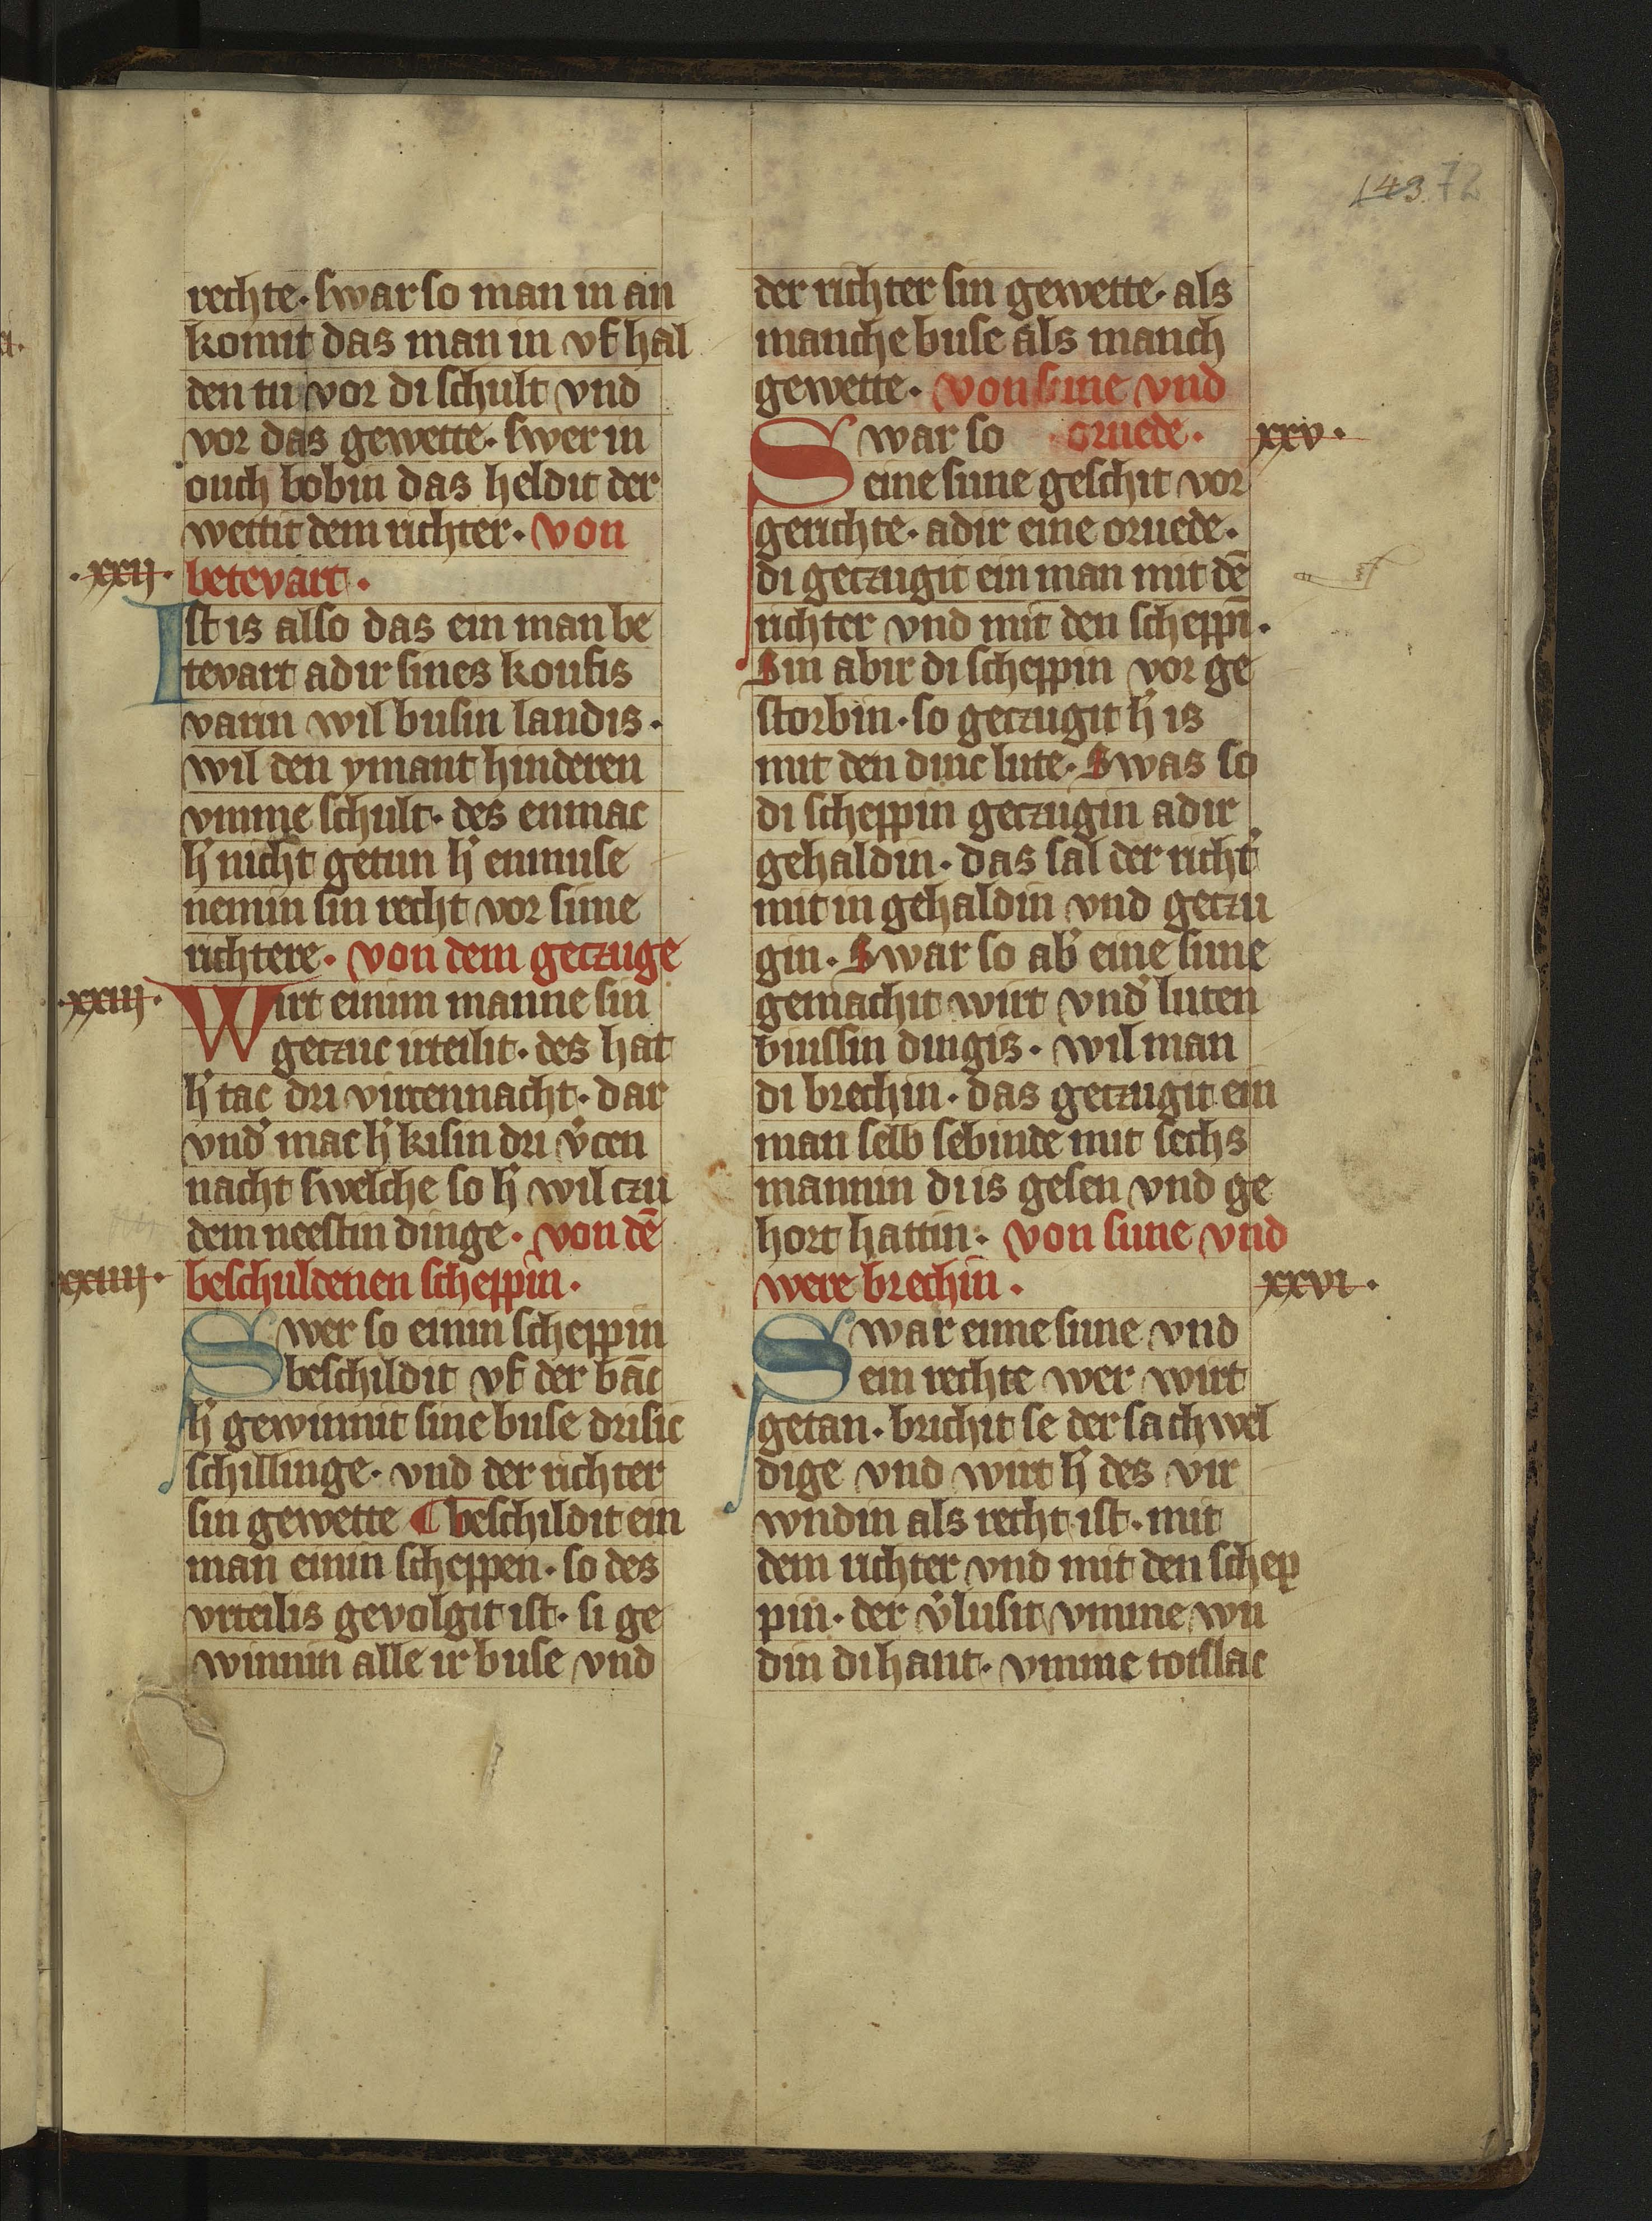 143. 72
rechte · swar so man in an
komit das man in vf hal
den tu vor di schult vnd
vor das gewette · swer in
ouch bobin das heldit der
wettit dem richter · von
· xxij · betevart ·
Ist is also das ein man be
tevart adir sines koufis
varin wil busin landis ·
wil den ymant hinderen
vmme schult · des enmac
h' nicht getun h' enmuse
nemin sin recht vor sime
richtere · von dem geczuge
· xxiij · Wirt einim manne sin
geczuc irteilit · des hat
h' tac dri virczennacht · dar
vnd' mac h' kisin dri v'cen
nacht swelche so h' wil czu
dem neestin dinge · von dē
xxiiij · beschuldenen scheppin ·
Swer so einin scheppin
beschildit vf der bāc
h' gewinnit sine buse drisic
schillinge · vnd der richter
sin gewette ¶ beschildit ein
man einin scheppen · so des
vrteilis gevolgit ist · si ge
winnin alle ir buse vnd
der richter sin gewette · als
manche buse als manch
gewette · von sune vnd
Swar so · oruede · xxv ·
eine sune geschit vor
gerichte · adir eine oruede ·
di geczugit ein man mit dē
richter vnd mit den scheppī ·
Sin abir di scheppin vor ge
storbin · so geczugit h' is
mit den dinc lute · Swas so
di scheppin geczugin adir
gehaldin · das sal der richt'
mit in gehaldin vnd geczu
gin · Swar so ab' eine sune
gemachit wirt vnd' luten
buissin dingis · wil man
di brechin · das geczugit ein
man selb sebinde mit sechs
mannin di is gesen vnd ge
hort hattin · von sune vnd
were brechin · xxvi ·
Swar eine sune vnd
ein rechte wer wirt
getan · brichit se der sachwel
dige vnd wirt h' des vir
wndin als recht ist · mit
dem richter vnd mit den schep
pin · der v'lusit vmme wn
din di hant · vmme totslac